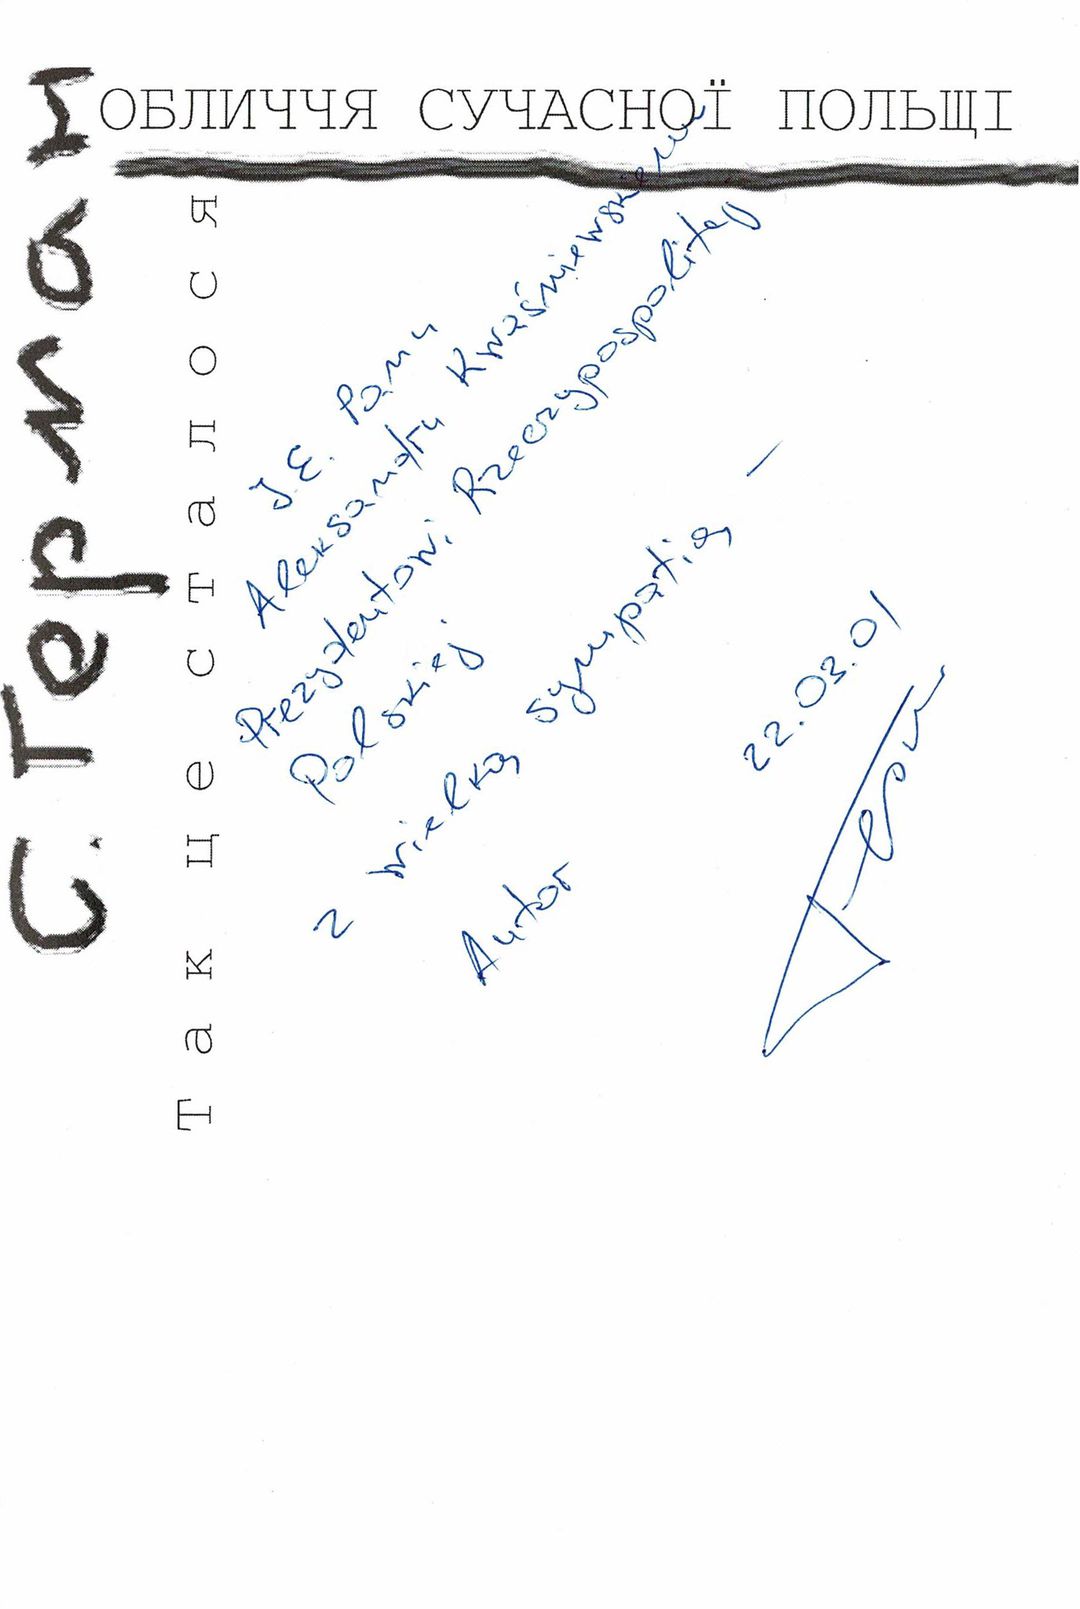 ОБЛИЧЧЯ СУЧАСНОЇ ПОЛЬЩІ
С. Терман
Так це сталося
J.E. Panu
Aleksandru Kwaśniewskiemu
Prezydentowi Rzeczypospolitej
Polskiej
z wielką sympatią –
Autor
22.03.01